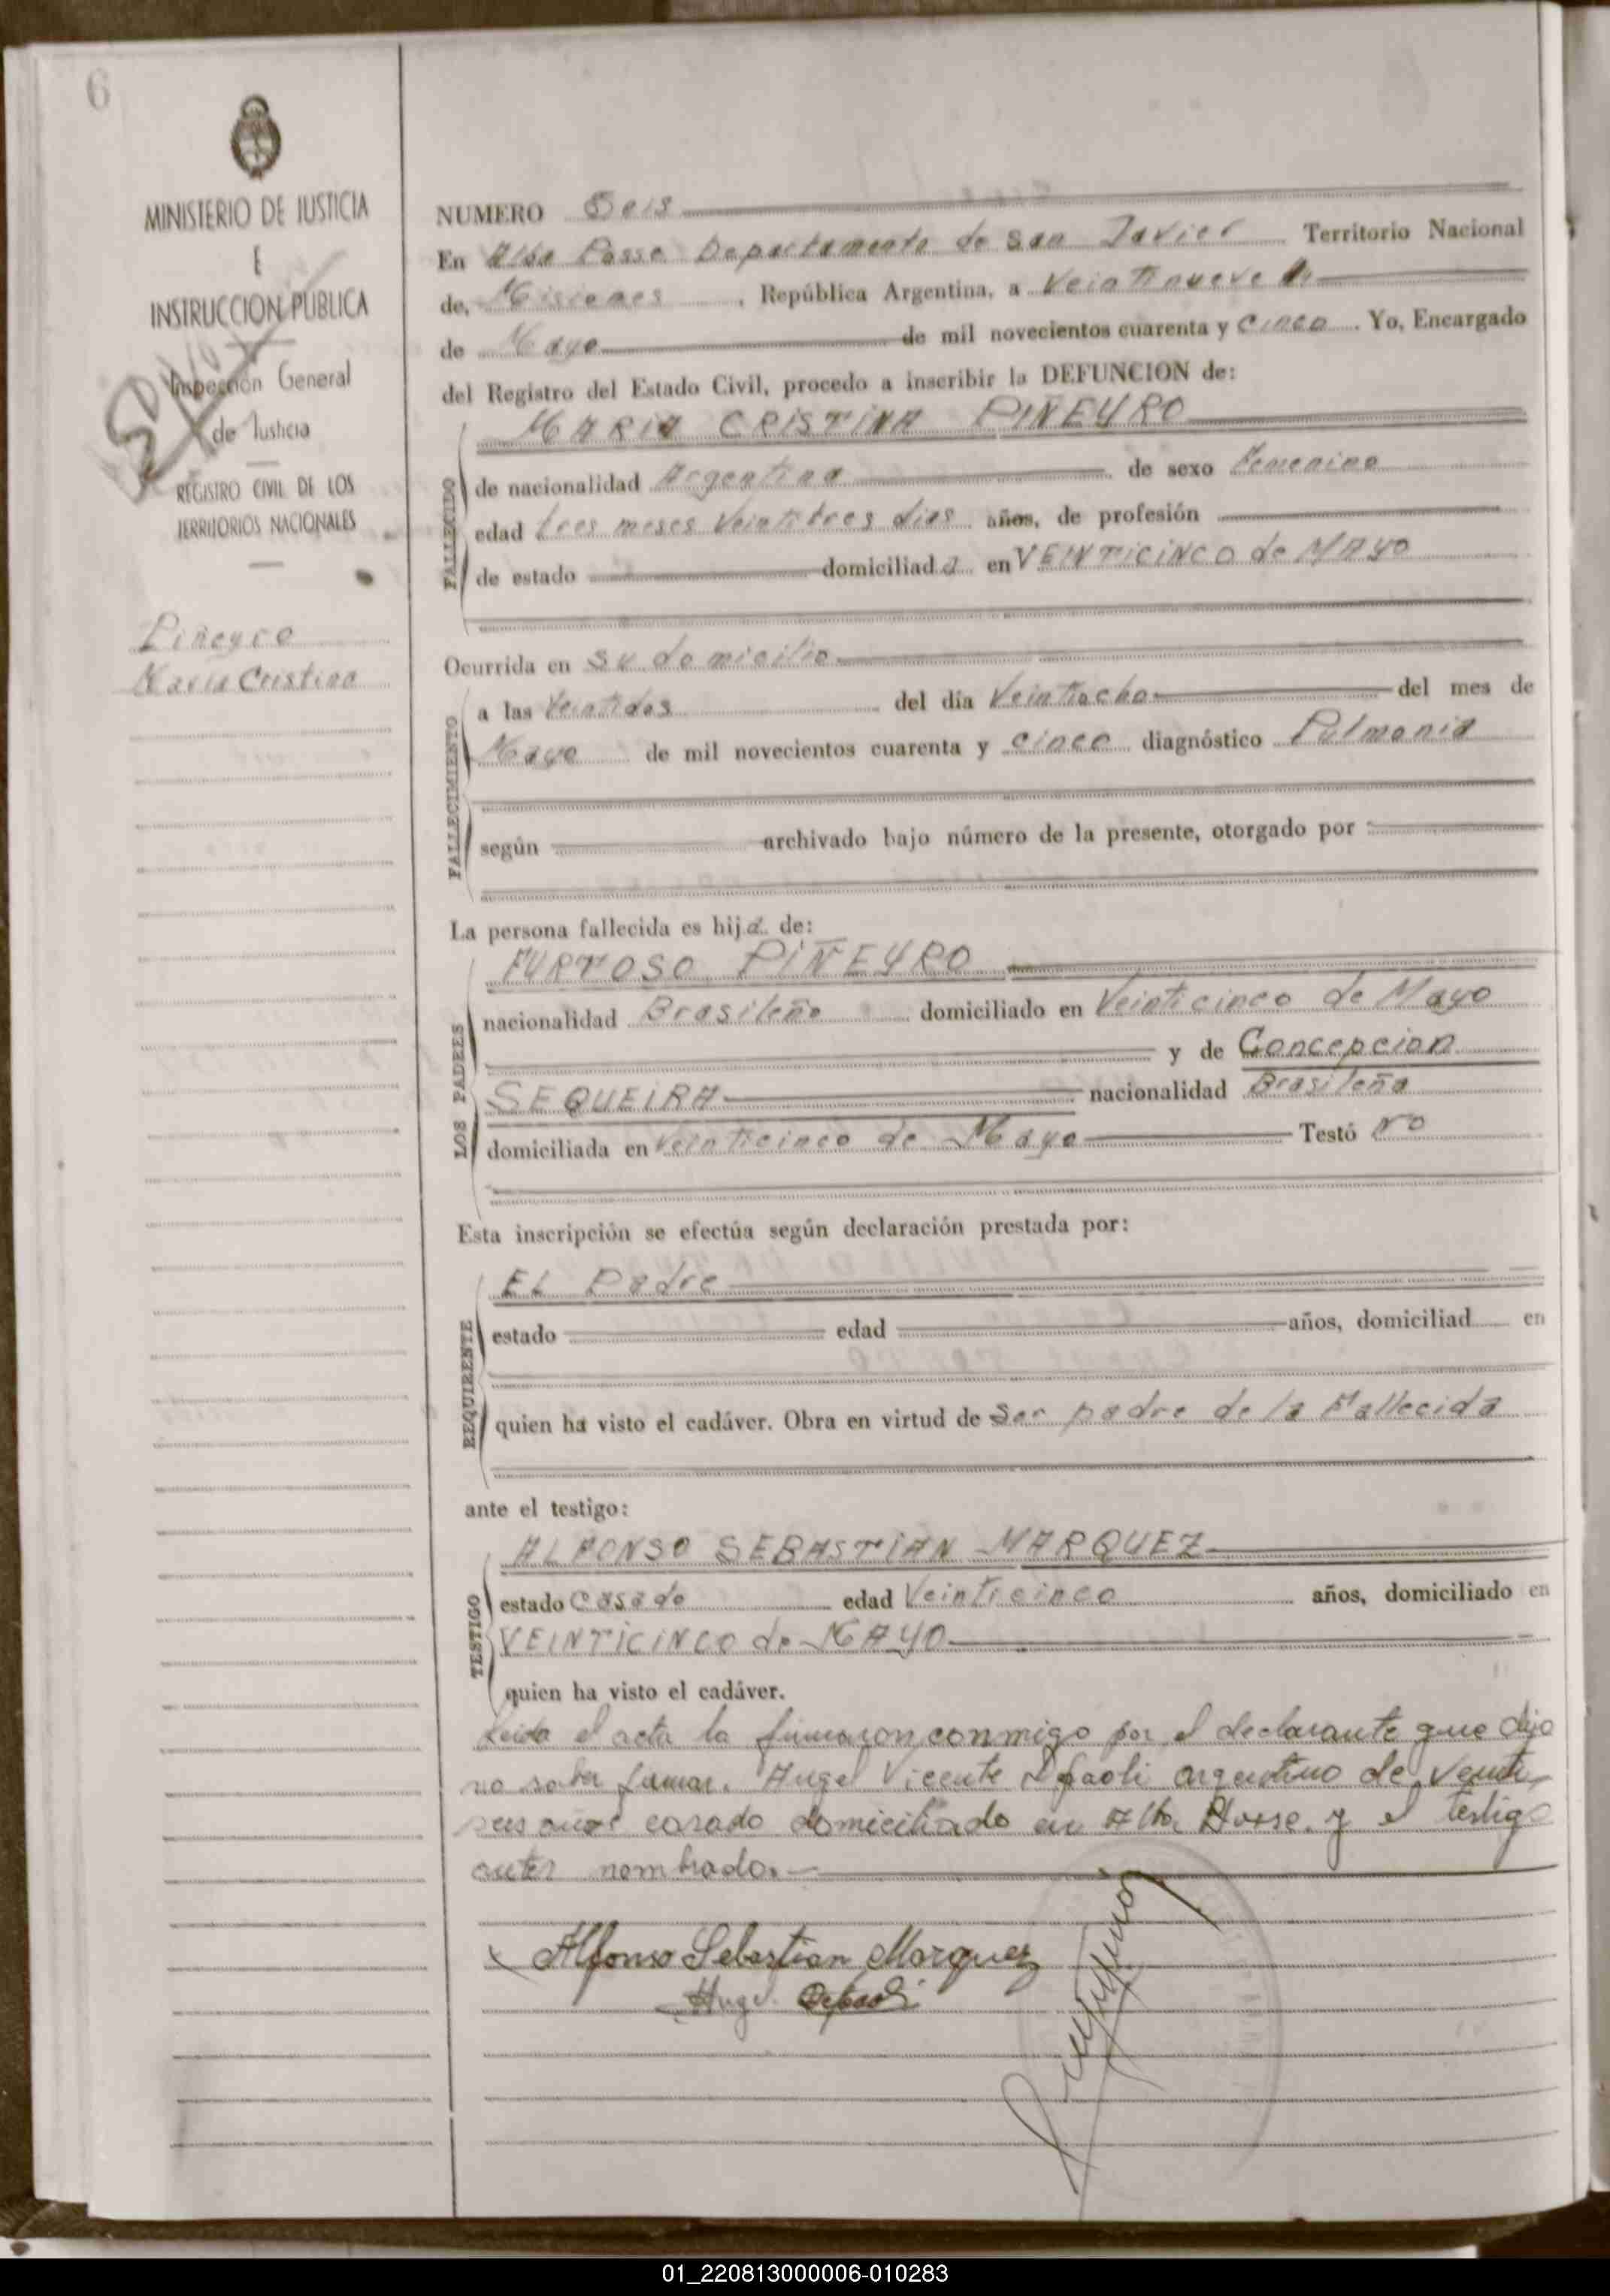 6
MINISTERIO DE JUSTICIA
E
INSTRUCCION PUBLICA
Inspección General
de Justicia
REGISTRO CIVIL DE LOS
TERRITORIOS NACIONALES
Piñeyro
Maria Cristina
NUMERO Seis
En Alba Posse Departamento de San Javier Territorio Nacional
de, Misiones, República Argentina, a Veintinueve
de Mayo de mil novecientos cuarenta y cinco. Yo, Encargado
del Registro del Estado Civil, procedo a inscribir la DEFUNCION de:
MARIA CRISTINA PIÑEYRO
FALLECIDO
de nacionalidad Argentina de sexo Femenino
edad tres meses Veintitres dias años, de profesión
de estado domiciliada en VEINTICINCO de MAYO
Ocurrida en su domicilio
FALLECIMIENTO
a las Veintidos del día Veintiocho del mes de
Mayo de mil novecientos cuarenta y cinco diagnóstico Pulmonia
según archivado bajo número de la presente, otorgado por
La persona fallecida es hija de:
FURTOSO PIÑEYRO
LOS PADRES
nacionalidad Brasileño domiciliado en Veinticinco de Mayo
y de Concepcion
SEQUEIRA nacionalidad Brasileña
domiciliada en Veinticinco de Mayo Testó No
Esta inscripción se efectúa según declaración prestada por:
EL Padre
REQUIRENTE
estado edad años, domiciliad en
quien ha visto el cadáver. Obra en virtud de Ser padre de la Fallecida
ante el testigo:
ALFONSO SEBASTIAN MARQUEZ
TESTIGO
estado Casado edad Veinticinco años, domiciliado en
VEINTICINCO de MAYO
quien ha visto el cadáver.
Leida el acta la firmaron conmigo por el declarante que dijo
no saber firmar. Angel Vicente Depaoli argentino de veinti
seis años casado domiciliado en Alba Posse. y el testigo
antes nombrado.
Alfonso Sebastian Marquez
Angel Depaoli
01_220813000006-010283